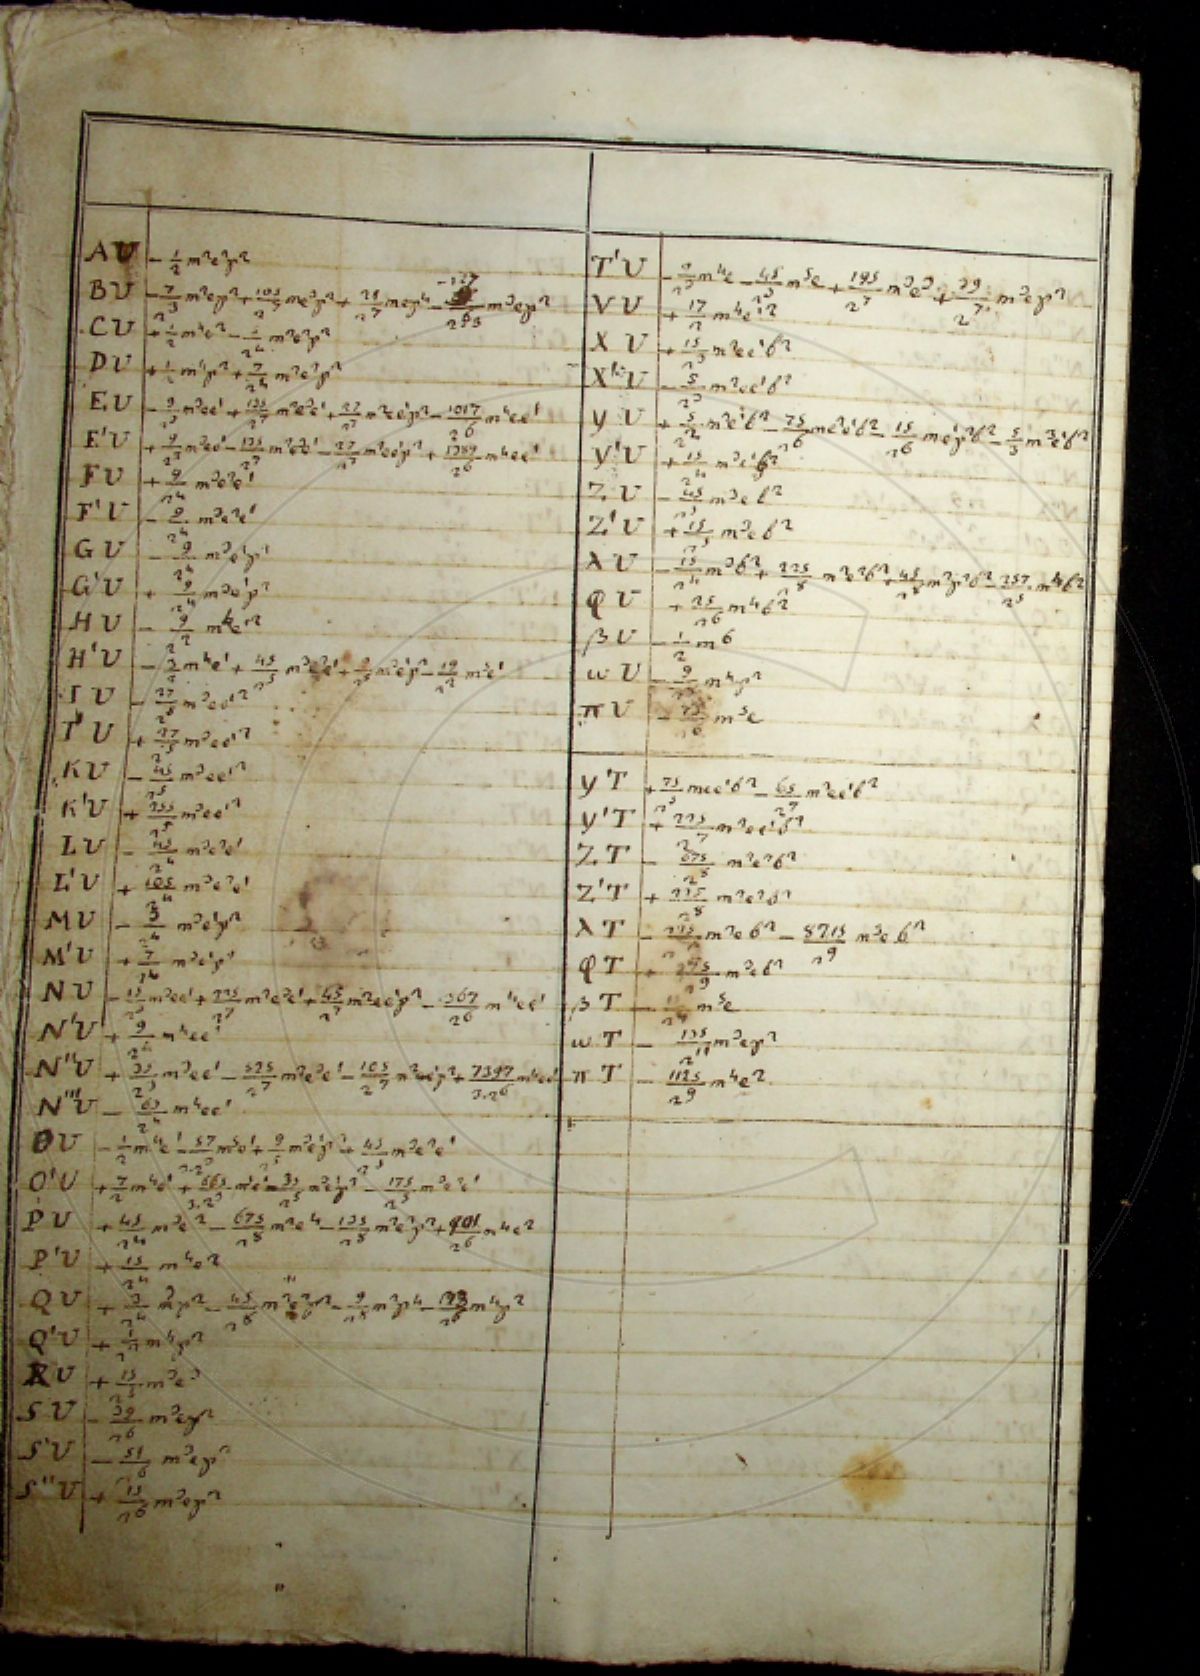 AU − 1/2 m²e²γ²
BU − 7/2³ m²eγ² + 105/2⁷ me³γ² + 21/2⁷ meγ⁴ − m³eγ²
CU + 1/2 m⁴e² − 1/2⁴ m²e²γ²
DU + m⁴γ² + 7/2⁴ m²e²γ²
EU − 9/2³ m³ee' + 135/2⁷ m²e³e' + 27/2⁷ m²ee'γ² − 1017/2⁶ m⁴ee'
E'U + 9/2³ m³ee' − 135/2⁷ m²e³e' − 27/2⁷ m²ee'γ² + 1389/2⁶ m⁴ee'
FU + 9/2⁴ m³e²e'
F'U − 9/2⁴ m³e²e'
GU − 9/2⁴ m³e'γ²
G'U + 9/2⁴ m³e'γ²
HU − 9/2² m⁴e'²
H'U − m⁴e' + 45/2⁵ m³e²e' + m³e'γ² m⁵e'
IU − 27/2⁵ m³ee'²
I'U + 27/2⁵ m³ee'²
KU − 45/2⁵ m³ee'²
K'U + 255/2⁵ m³ee'²
LU − 45/2⁴ m³e²e'
L'U + 105/2⁴ m³e²e'
MU − 3/2⁴ m³e'γ²
M'U + 7/2⁴ m³e'γ²
NU − 15/2³ m³ee' + 225/2⁷ m²e³e' + 45/2⁷ m²ee'γ² − 367/2⁶ m⁴ee'
N'U + 9/2⁴ m⁴ee'
N''U + 35/2³ m³ee' − 525/2⁷ m²e³e' − 105/2⁷ m²ee'γ² + 7397/3.2⁶ m⁴ee'
N'''U − 63/2⁴ m⁴ee'
OU − 1/2 m⁴e' − 57 m⁵e' + 9/2⁵ m³e'γ² + 45/2⁵ m³e²e'
O'U + 7/2 m⁴e' + 565/3.2³ m⁵e' − 35/2⁵ m³e'γ² − 175/2⁵ m³e²e'
PU + 45/2⁴ m³e² − 675/2⁸ m²e⁴ − 135/2⁸ m²e²γ² + 401/2⁶ m⁴e²
P'U + 15/2⁴ m⁴e²
QU + 3/2⁴ m³γ² − 45/2⁸ m²e²γ² − 9/2⁸ m²γ⁴ − m⁴γ²
Q'U + m⁴γ²
RU + 15/2⁵ m³e³
SU − 39/2⁶ m³eγ²
S'U − 51/2⁶ m³eγ²
S''U + 15/2⁶ m³eγ²
T'U − 9/2³ m⁴e − 45/2³ m⁵e + 195/2⁷ m³e³ + 39/2⁷ m³eγ²
VU + 17/2 m⁴e'²
XU + 15/2³ m²ee'b²
X''U − 5/2³ m²ee'b²
yU + 5/2⁴ m²e'b² − 75/2⁶ me²e'b² − 15/2⁶ me'γ²b² − m³e'b²
y'U + 15/2⁴ m³e'b²
ZU − 45/2⁵ m³eb²
Z'U + 15/2⁵ m³eb²
λU − 15/2⁴ m³b² + 225/2⁸ m²e²b² + 45/2⁸ m²γ²b² − 257/2⁵ m⁴b²
φU + 25/2⁶ m⁴b²
βU − 1/2 m⁶
ωU − 9 m⁴γ²
πU − m⁵e
y'T + 75 mee'b² − 65/2⁷ m²ee'b²
y'T + 225/2⁷ m²ee'b²
ZT − 675/2⁸ m²e²b²
Z'T + 225/2⁸ m²e²b²
λT − m²eb² − 8715/2⁹ m³eb²
φT + m³eb²
βT − m⁵e
ωT − 135/2¹¹ m³eγ²
πT − 1125/2⁹ m⁴e²